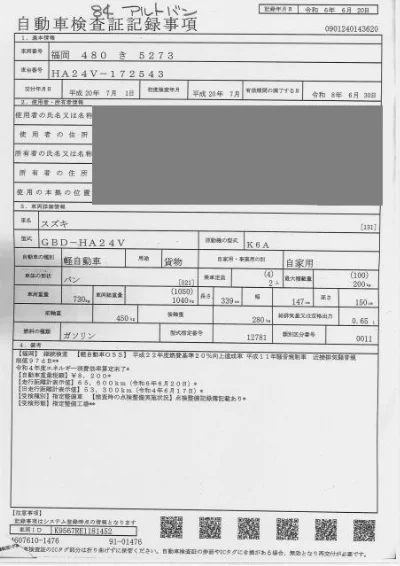 84 アルトバン
自動車検査証記録事項
記録年月日 令和 6年 6月 20日
0901240143620
1．基本情報
車両番号 福岡 480 き 5273
車台番号 HA24V-172543
交付年月日 平成 20年 7月 1日 初度検査年月 平成 20年 7月 有効期間の満了する日 令和 8年 6月 30日
2．使用者・所有者情報
使用者の氏名又は名称
使用者の住所
所有者の氏名又は名称
所有者の住所
使用の本拠の位置
3．車両詳細情報
車名 スズキ
型式 GBD-HA24V 原動機の型式 K6A
自動車の種別 軽自動車 用途 貨物 自家用・事業用の別 自家用
車体の形状 バン [021] 乗車定員 (4) 2人 最大積載量 (100) 200kg
車両重量 730kg 車両総重量 (1050) 1040kg 長さ 339cm 幅 147cm 高さ 150cm
前軸重 450kg 後軸重 280kg 総排気量又は定格出力 0.65 L
燃料の種類 ガソリン 型式指定番号 12781 類別区分番号 0011
4．備考
【福岡】 継続検査 【軽自動車OSS】 平成22年度燃費基準20％向上達成車 平成11年騒音規制車 近接排気騒音規
制値97dB**
令和4年度エネルギー消費効率算定未了*
【自動車重量税額】¥8,200*
【走行距離計表示値】65,600km（令和6年6月20日）*
【旧走行距離計表示値】53,300km（令和4年6月17日）*
【受検種別】指定整備車 【検査時の点検整備実施状況】点検整備記録簿記載あり*
【受検形態】指定整備工場**
【注意事項】
記録事項はシステム登録時点の情報となります
車両ID K9567RE1181452
9607610-1476 91-01476
車検査証のICタグ部分は折り曲げずに保管ください。自動車検査証の券面やICタグに支障がある場合、無効となり再交付が必要です。